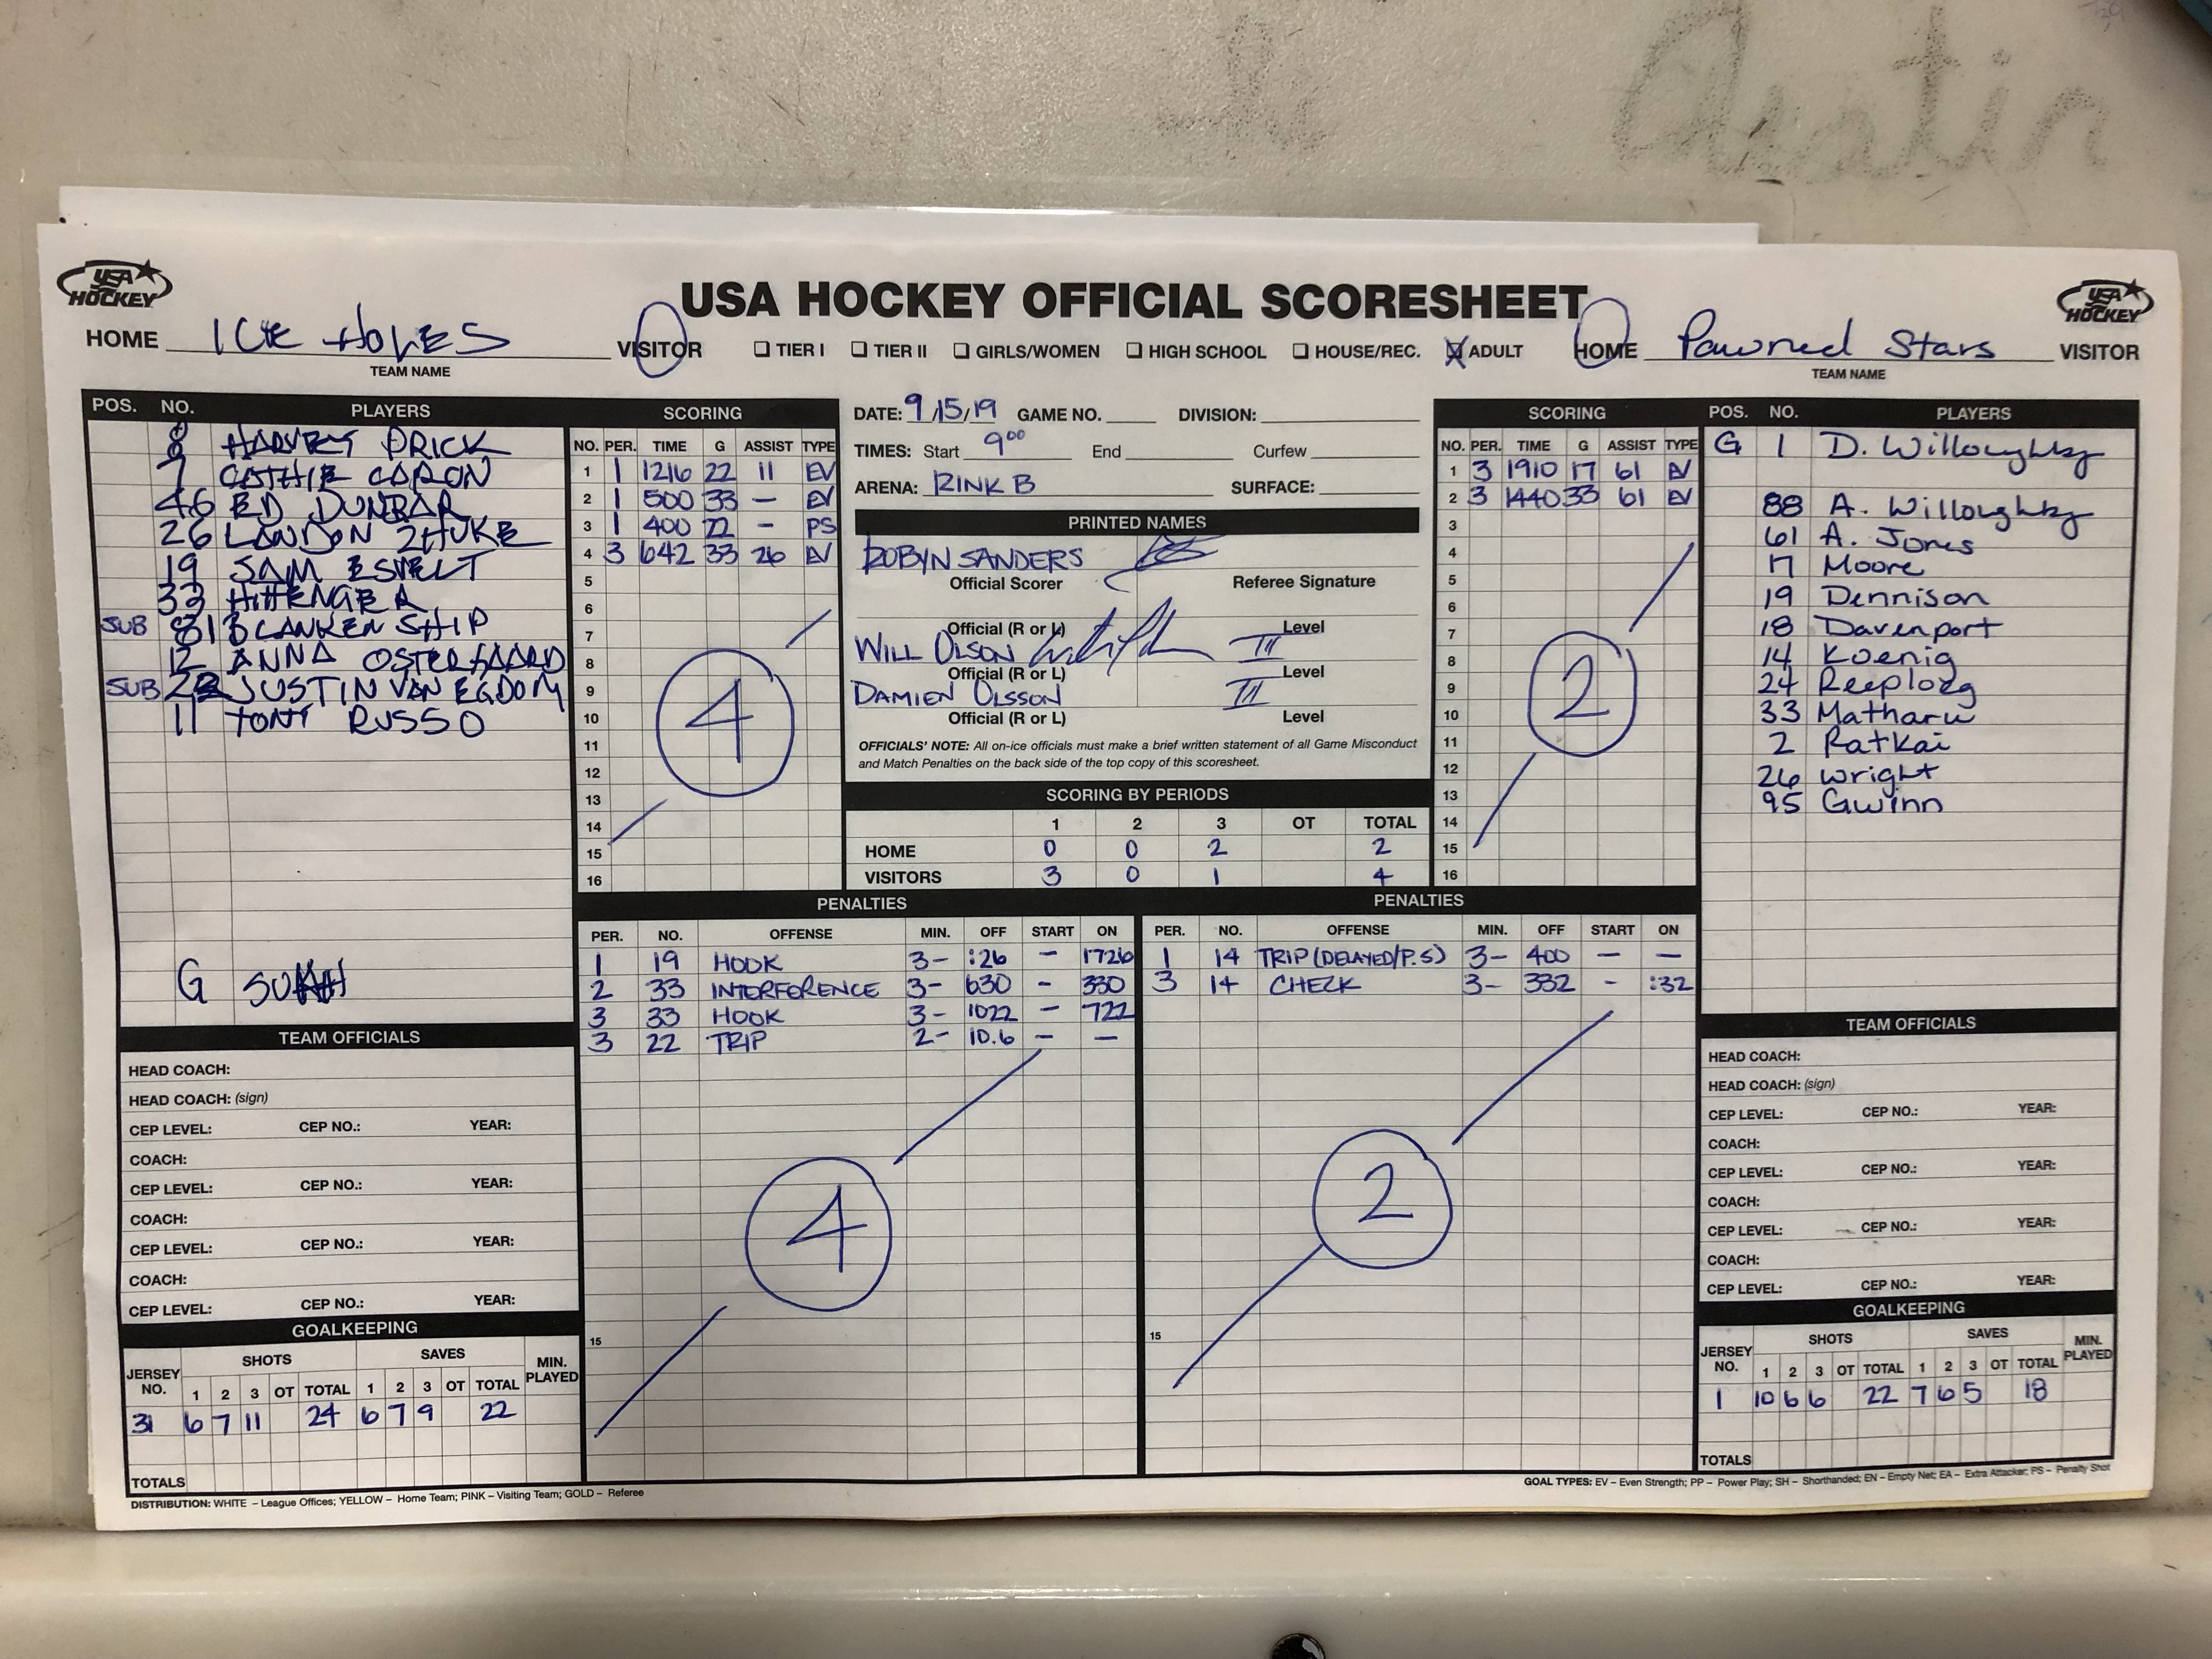 Austin
USA HOCKEY
USA HOCKEY OFFICIAL SCORESHEET
USA HOCKEY
HOME ICE HOLES VISITOR
TEAM NAME
❑ TIER I ❑ TIER II ❑ GIRLS/WOMEN ❑ HIGH SCHOOL ❑ HOUSE/REC. ☒ ADULT
HOME Pawned Stars VISITOR
TEAM NAME
POS. NO. PLAYERS
8 HARVEY PRICK
7 CATHIE CARON
46 ED DUNBAR
26 LANDON ZHUKE
19 SAM ESVELT
33 HITTENGER
SUB 81 BLANKENSHIP
12 ANNA OSTERGAARD
SUB 22 JUSTIN VAN EGDOM
11 TONY RUSSO
G
SCORING
NO. PER. TIME G ASSIST TYPE
1 1 1216 22 11 EV
2 1 500 33 – EV
3 1 400 22 - PS
4 3 642 33 26 EV
5
6
7
8
9
10
11
12
13
14
15
16
4
DATE: 9/15/19 GAME NO. DIVISION:
TIMES: Start 9:00 End Curfew
ARENA: RINK B SURFACE:
PRINTED NAMES
ROBYN SANDERS
Official Scorer Referee Signature
Official (R or L) Level
WILL OLSON III
Official (R or L) Level
DAMIEN OLSSON III
Official (R or L) Level
OFFICIALS' NOTE: All on-ice officials must make a brief written statement of all Game Misconduct
and Match Penalties on the back side of the top copy of this scoresheet.
SCORING BY PERIODS
1 2 3 OT TOTAL
HOME 0 0 2 2
VISITORS 3 0 1 4
SCORING
NO. PER. TIME G ASSIST TYPE
1 3 1910 17 61 EV
2 3 1440 33 61 EV
3
4
5
6
7
8
9
10
11
12
13
14
15
16
2
POS. NO. PLAYERS
G 1 D. Willoughby
88 A. Willoughby
61 A. Jones
17 Moore
19 Dennison
18 Davenport
14 Koenig
24 Reeploeg
33 Matharu
2 Ratkai
26 Wright
95 Gwinn
PENALTIES
PER. NO. OFFENSE MIN. OFF START ON
1 19 HOOK 3- :26 - 1726
2 33 INTERFERENCE 3- 630 - 330
3 33 HOOK 3- 1022 - 722
3 22 TRIP 2- 10.6 - -
15
4
PENALTIES
PER. NO. OFFENSE MIN. OFF START ON
1 14 TRIP (DELAYED/P.S) 3- 400 - -
3 14 CHECK 3- 332 - :32
15
2
TEAM OFFICIALS
HEAD COACH:
HEAD COACH: (sign)
CEP LEVEL: CEP NO.: YEAR:
COACH:
CEP LEVEL: CEP NO.: YEAR:
COACH:
CEP LEVEL: CEP NO.: YEAR:
COACH:
CEP LEVEL: CEP NO.: YEAR:
GOALKEEPING
JERSEY NO. SHOTS SAVES MIN. PLAYED
1 2 3 OT TOTAL 1 2 3 OT TOTAL
31 6 7 11 24 6 7 9 22
TOTALS
TEAM OFFICIALS
HEAD COACH:
HEAD COACH: (sign)
CEP LEVEL: CEP NO.: YEAR:
COACH:
CEP LEVEL: CEP NO.: YEAR:
COACH:
CEP LEVEL: CEP NO.: YEAR:
COACH:
CEP LEVEL: CEP NO.: YEAR:
GOALKEEPING
JERSEY NO. SHOTS SAVES MIN. PLAYED
1 2 3 OT TOTAL 1 2 3 OT TOTAL
1 10 6 6 22 7 6 5 18
TOTALS
DISTRIBUTION: WHITE – League Offices; YELLOW – Home Team; PINK – Visiting Team; GOLD – Referee
GOAL TYPES: EV – Even Strength; PP – Power Play; SH – Shorthanded; EN – Empty Net; EA – Extra Attacker; PS – Penalty Shot